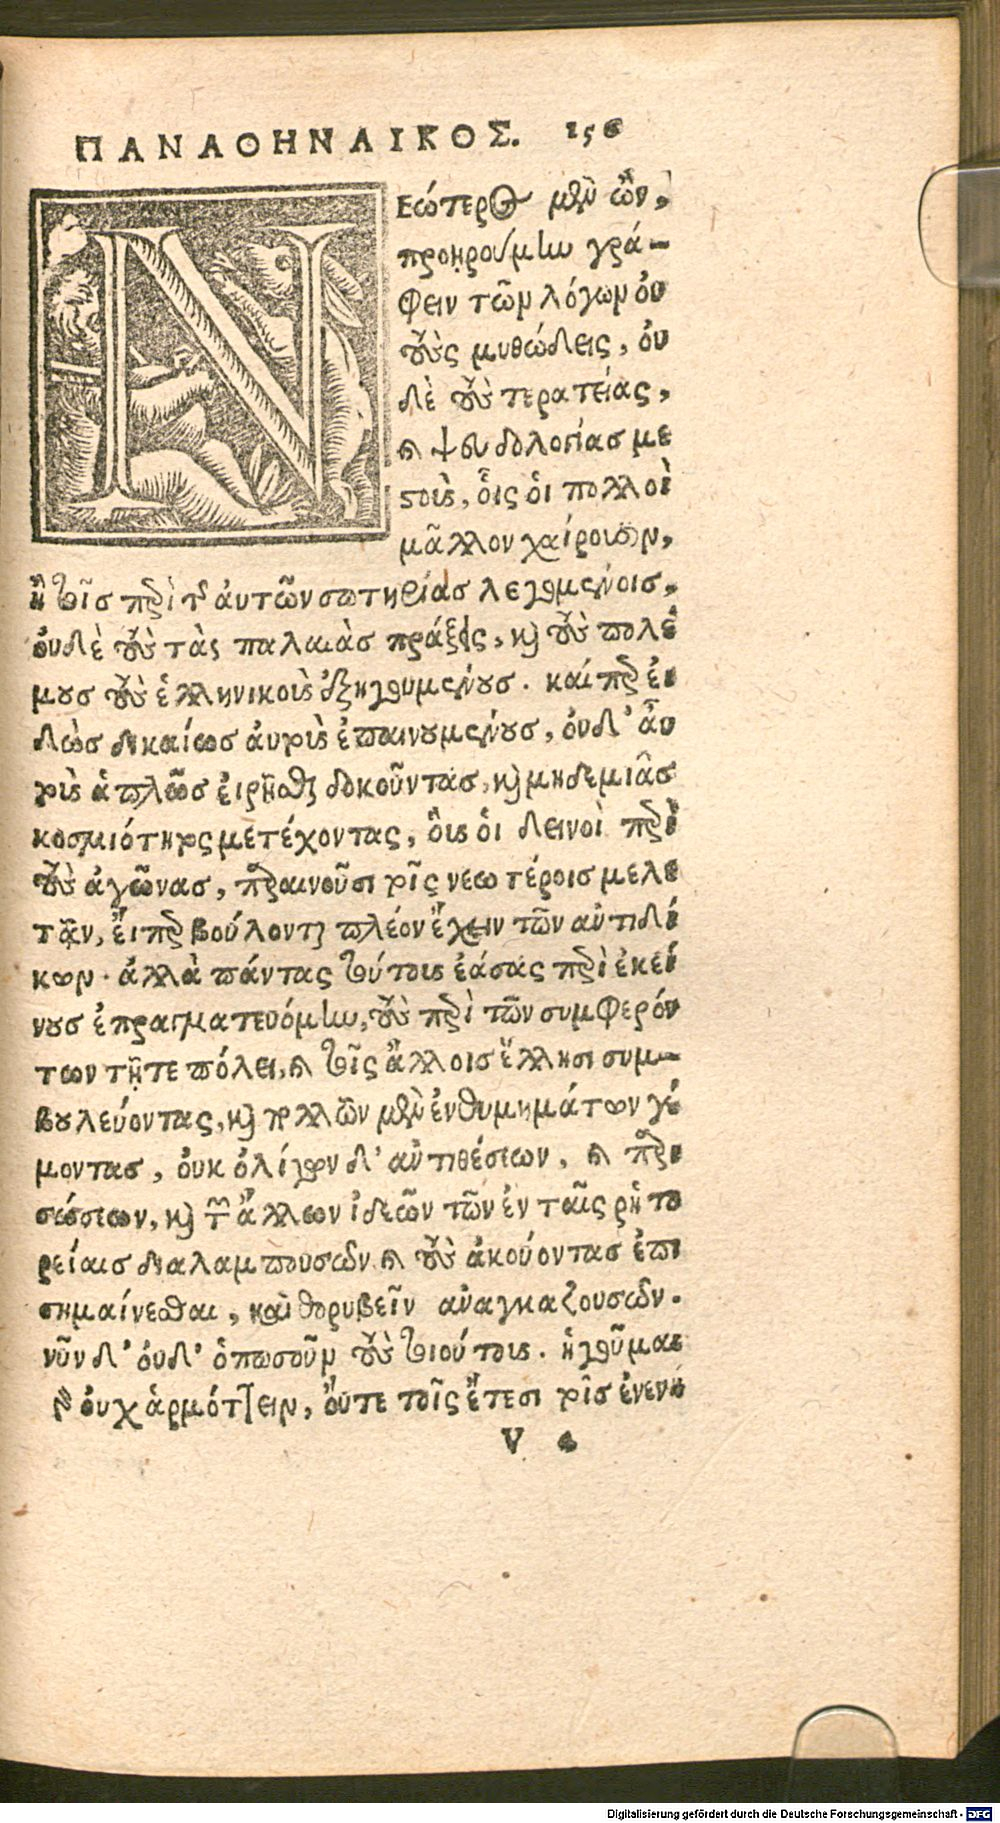 ΠΑΝΑΘΗΝΑΙΚΟΣ. 156
Νεώτερος μὲν ὢν,
προῃρούμην γρά-
φειν τῶν λόγων οὐ
τοὺς μυθώδεις, οὐ
δὲ τοὺς τερατείας,
καὶ ψευδολογίας με
στοὺς, οἷς οἱ πολλοὶ
μᾶλλον χαίρουσιν,
ἢ τοῖς περὶ τῆς αὐτῶν σωτηρίας λεγομένοις,
οὐδὲ τοὺς τὰς παλαιὰς πράξεις, καὶ τοὺς πολέ
μους τοὺς ἑλληνικοὺς ἐξηγουμένους. καίπερ εἰ
δὼς δικαίως αὐτοὺς ἐπαινουμένους, οὐδ' αὖ
τοὺς ἁπλῶς εἰρῆσθαι δοκοῦντας, καὶ μηδεμιᾶς
κοσμιότητος μετέχοντας, οὓς οἱ δεινοὶ περὶ
τοὺς ἀγῶνας, παραινοῦσι τοῖς νεωτέροις μελε
τᾷν, εἴπερ βούλονται πλέον ἔχειν τῶν ἀντιδί
κων. ἀλλὰ πάντας τούτους ἐάσας περὶ ἐκεί
νους ἐπραγματευόμην, τοὺς περὶ τῶν συμφερόν
των τῇ τε πόλει, καὶ τοῖς ἄλλοις ἕλλησι συμ-
βουλεύοντας, καὶ πολλῶν μὲν ἐνθυμημάτων γέ
μοντας, οὐκ ὀλίγων δ' ἀντιθέσεων, καὶ παρι
σώσεων, καὶ τῶν ἄλλων ἰδεῶν τῶν ἐν ταῖς ῥητο
ρείαις διαλαμπουσῶν καὶ τοὺς ἀκούοντας ἐπι
σημαίνεσθαι, καὶ θορυβεῖν ἀναγκαζουσῶν.
νῦν δ' οὐδ' ὁπωσοῦν τοὺς τοιούτους. ἡγοῦμαι
γὰρ οὐχ ἁρμόττειν, οὔτε τοῖς ἔτεσι τοῖς ἐνενή
V 4
Digitalisierung gefördert durch die Deutsche Forschungsgemeinschaft - DFG